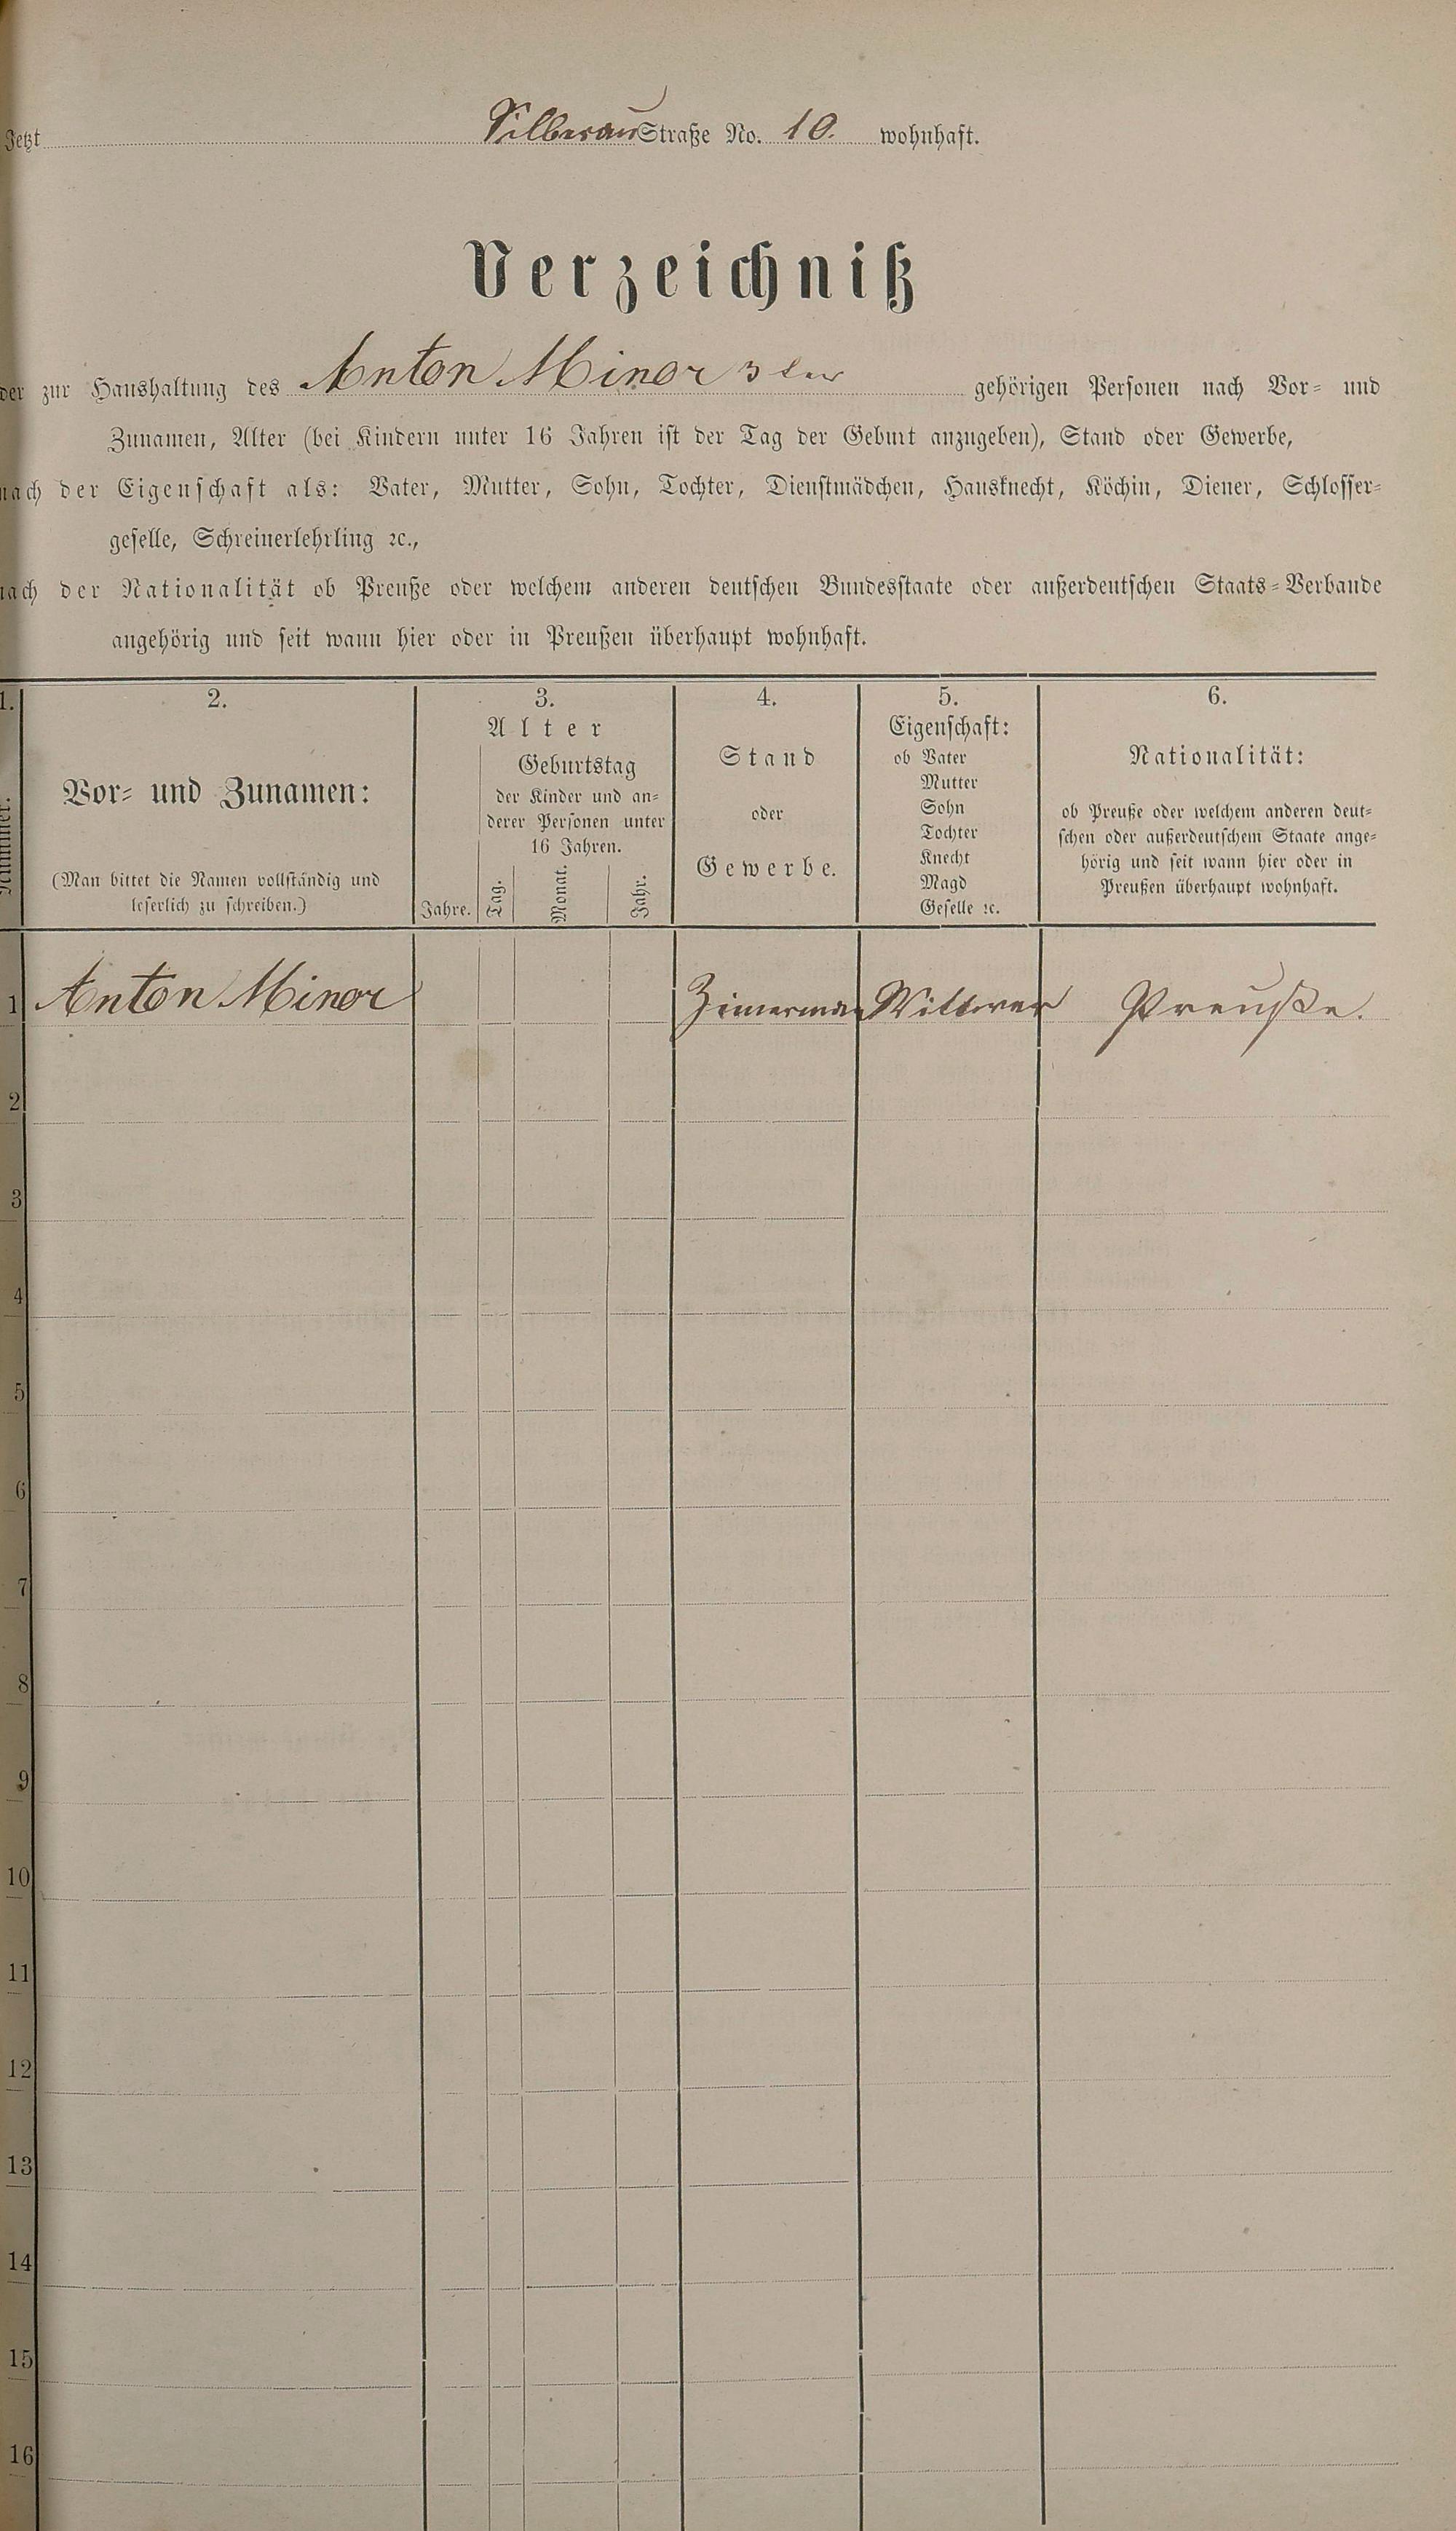 Jetzt Silberau Straße No. 10. wohnhaft.
Verzeichniß
der zur Haushaltung des Anton Minor 3ter gehörigen Personen nach Vor- und
Zunamen, Alter (bei Kindern unter 16 Jahren ist der Tag der Geburt anzugeben), Stand oder Gewerbe,
nach der Eigenschaft als: Vater, Mutter, Sohn, Tochter, Dienstmädchen, Hausknecht, Köchin, Diener, Schlosser-
geselle, Schreinerlehrling ꝛc.,
nach der Nationalität ob Preuße oder welchem anderen deutschen Bundesstaate oder außerdeutschen Staats-Verbande
angehörig und seit wann hier oder in Preußen überhaupt wohnhaft.
1.
Nummer.
2.
Vor- und Zunamen:
(Man bittet die Namen vollständig und
leserlich zu schreiben.)
3.
Alter
Jahre.
Geburtstag
der Kinder und an-
derer Personen unter
16 Jahren.
Tag.
Monat.
Jahr.
4.
Stand
oder
Gewerbe.
5.
Eigenschaft:
ob Vater
Mutter
Sohn
Tochter
Knecht
Magd
Geselle ꝛc.
6.
Nationalität:
ob Preuße oder welchem anderen deut-
schen oder außerdeutschem Staate ange-
hörig und seit wann hier oder in
Preußen überhaupt wohnhaft.
1 Anton Minor Zimerman Wittwer Preuße.
2
3
4
5
6
7
8
9
10
11
12
13
14
15
16